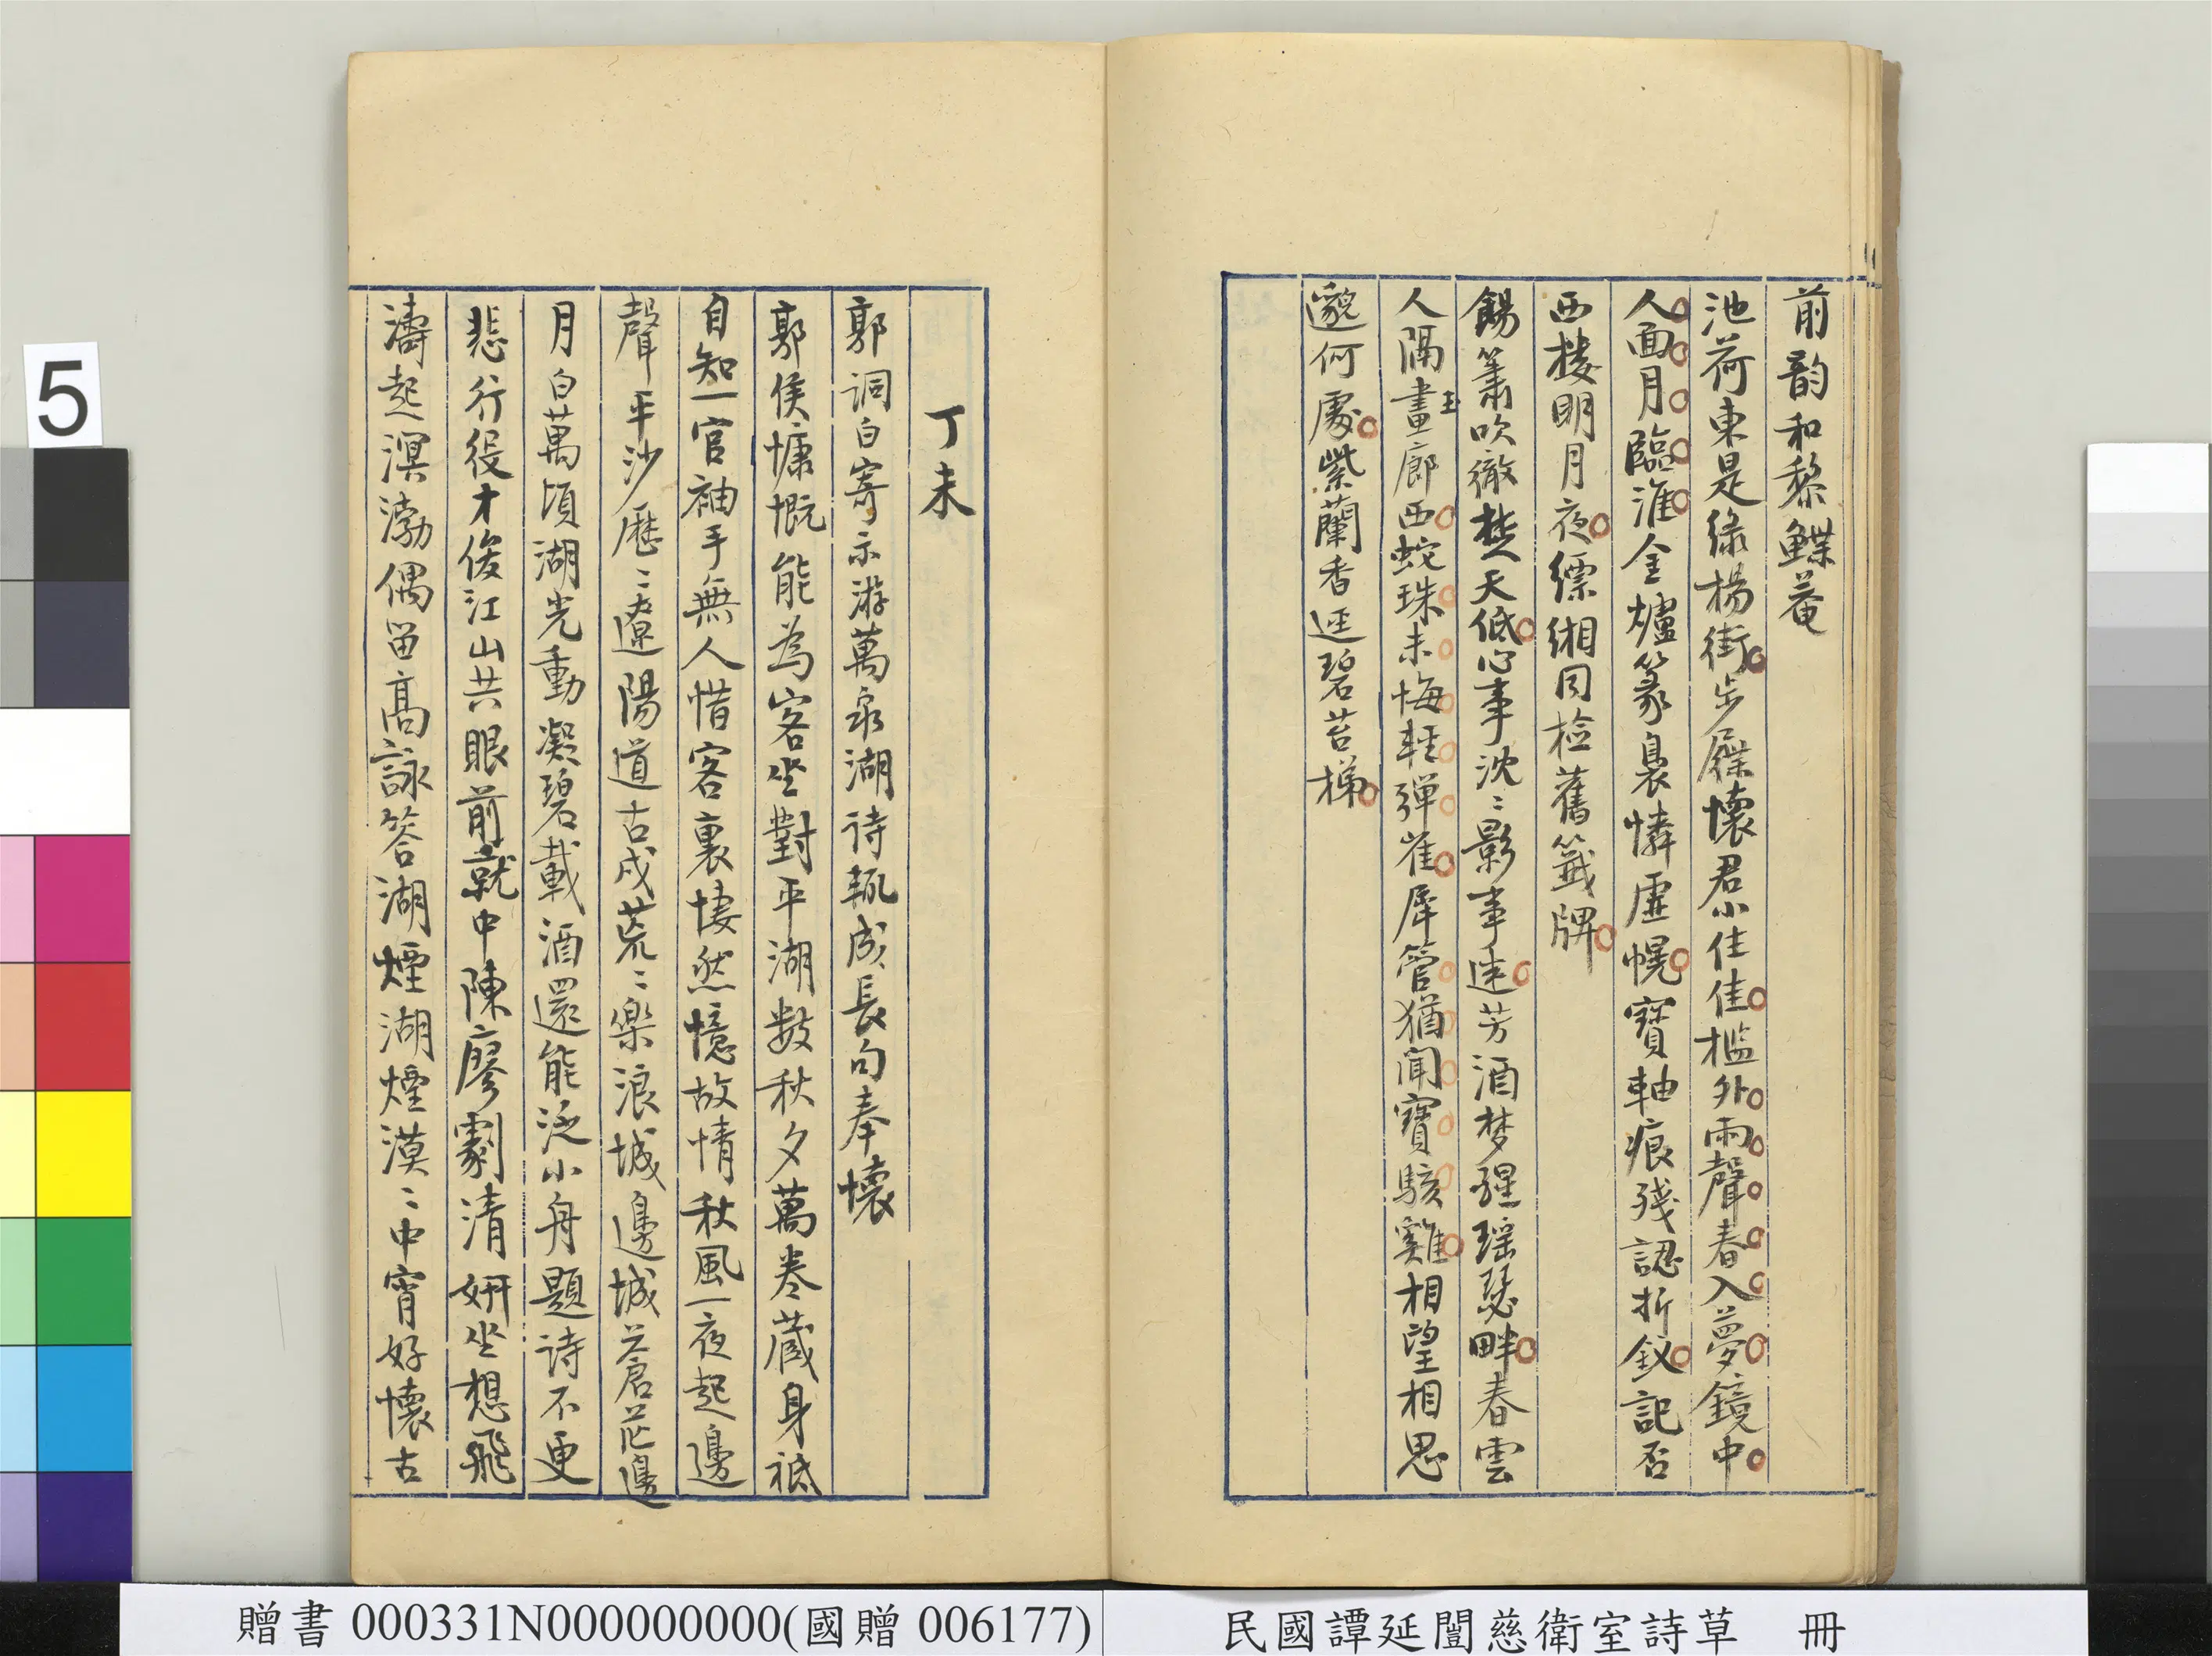 前韵和黎鰈菴
池荷東是綠楊街步屧懷君小住佳檻外雨聲春入夢鏡中
人面月臨淮金爐篆裊憐虛幌寶軸痕殘認折釵記否
西樓明月夜縹緗同檢舊籤牌
餳簫吹徹楚天低心事沈〻影事迷芳酒梦醒瑶瑟畔春雲
人隔畫廊西蛇珠未悔輕彈雀犀管猶聞寶駭雞相望相思
玉
邈何處紫蘭香逕碧苔梯
丁未
郭詞白寄示游萬泉湖詩輒成長句奉懷
郭侯慷慨能為客坐對平湖數秋夕萬卷藏身祗
自知一官袖手無人惜客裏悽然憶故情秋風一夜起邊
聲平沙歷〻遼陽道古戍荒〻樂浪城邊城蒼茫邊
月白萬頃湖光動凝碧載酒還能泛小舟題诗不更
悲行役才俊江山共眼前就中陳廖劇清妍坐想飛
濤起溟渤偶留高詠答湖煙湖煙漠〻中宵好懷古
5
贈書 000331N000000000(國贈 006177)
民國譚延闓慈衛室詩草 冊